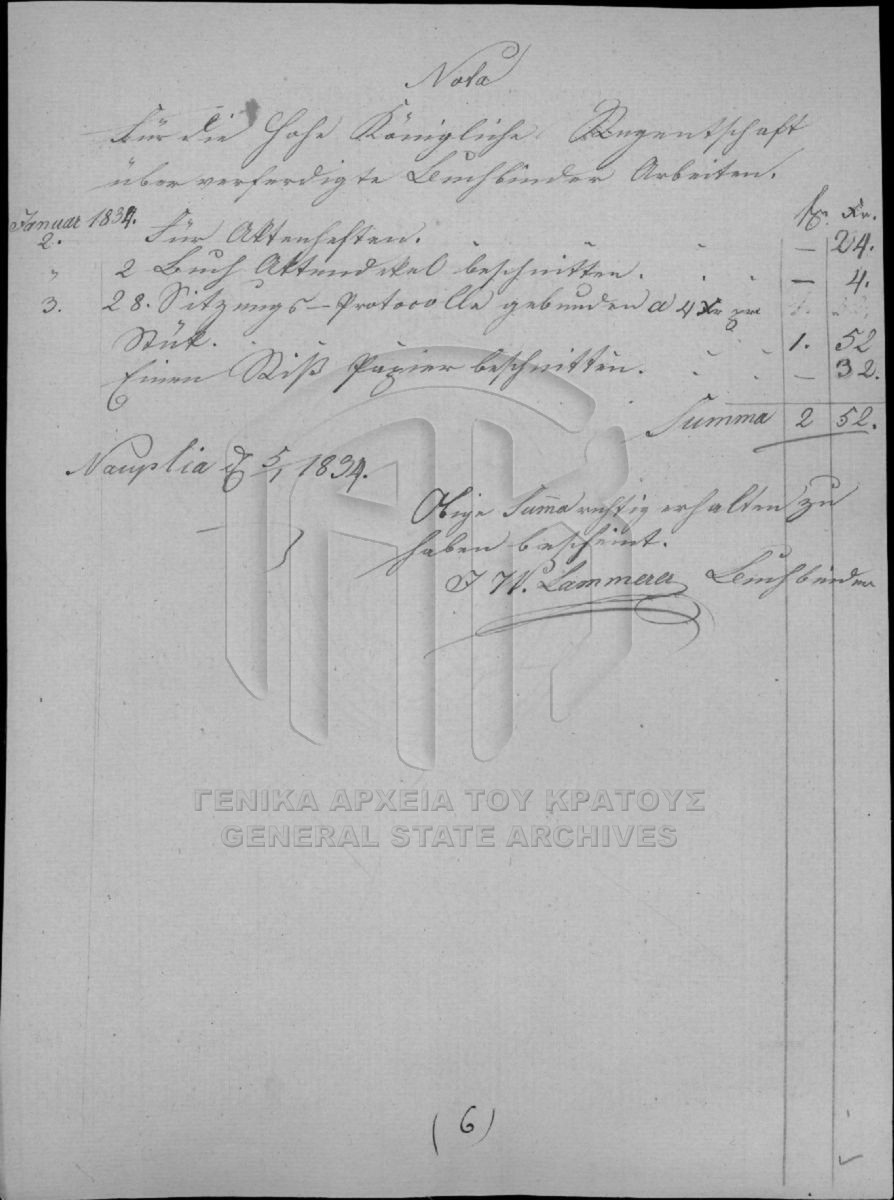 Nota
Für die Hohe Königliche Regentschaft
über verferdigte Buchbinder Arbeiten.
Januar 1834. fl. Xr.
2. Für Aktenheften. — 24.
" 2 Buch Aktendekel beschnitten. — 4.
3. 28. Sitzungs-Protocolle gebunden a 4 Xr pr
Stük. 1. 52
Einen Riß Papier beschnitten. — 32.
Summa 2 52.
Nauplia d 5/1 1834.
Obige Summa richtig erhalten zu
haben bescheint.
J W. Lammerer Buchbinder
ΓΕΝΙΚΑ ΑΡΧΕΙΑ ΤΟΥ ΚΡΑΤΟΥΣ
GENERAL STATE ARCHIVES
(6)